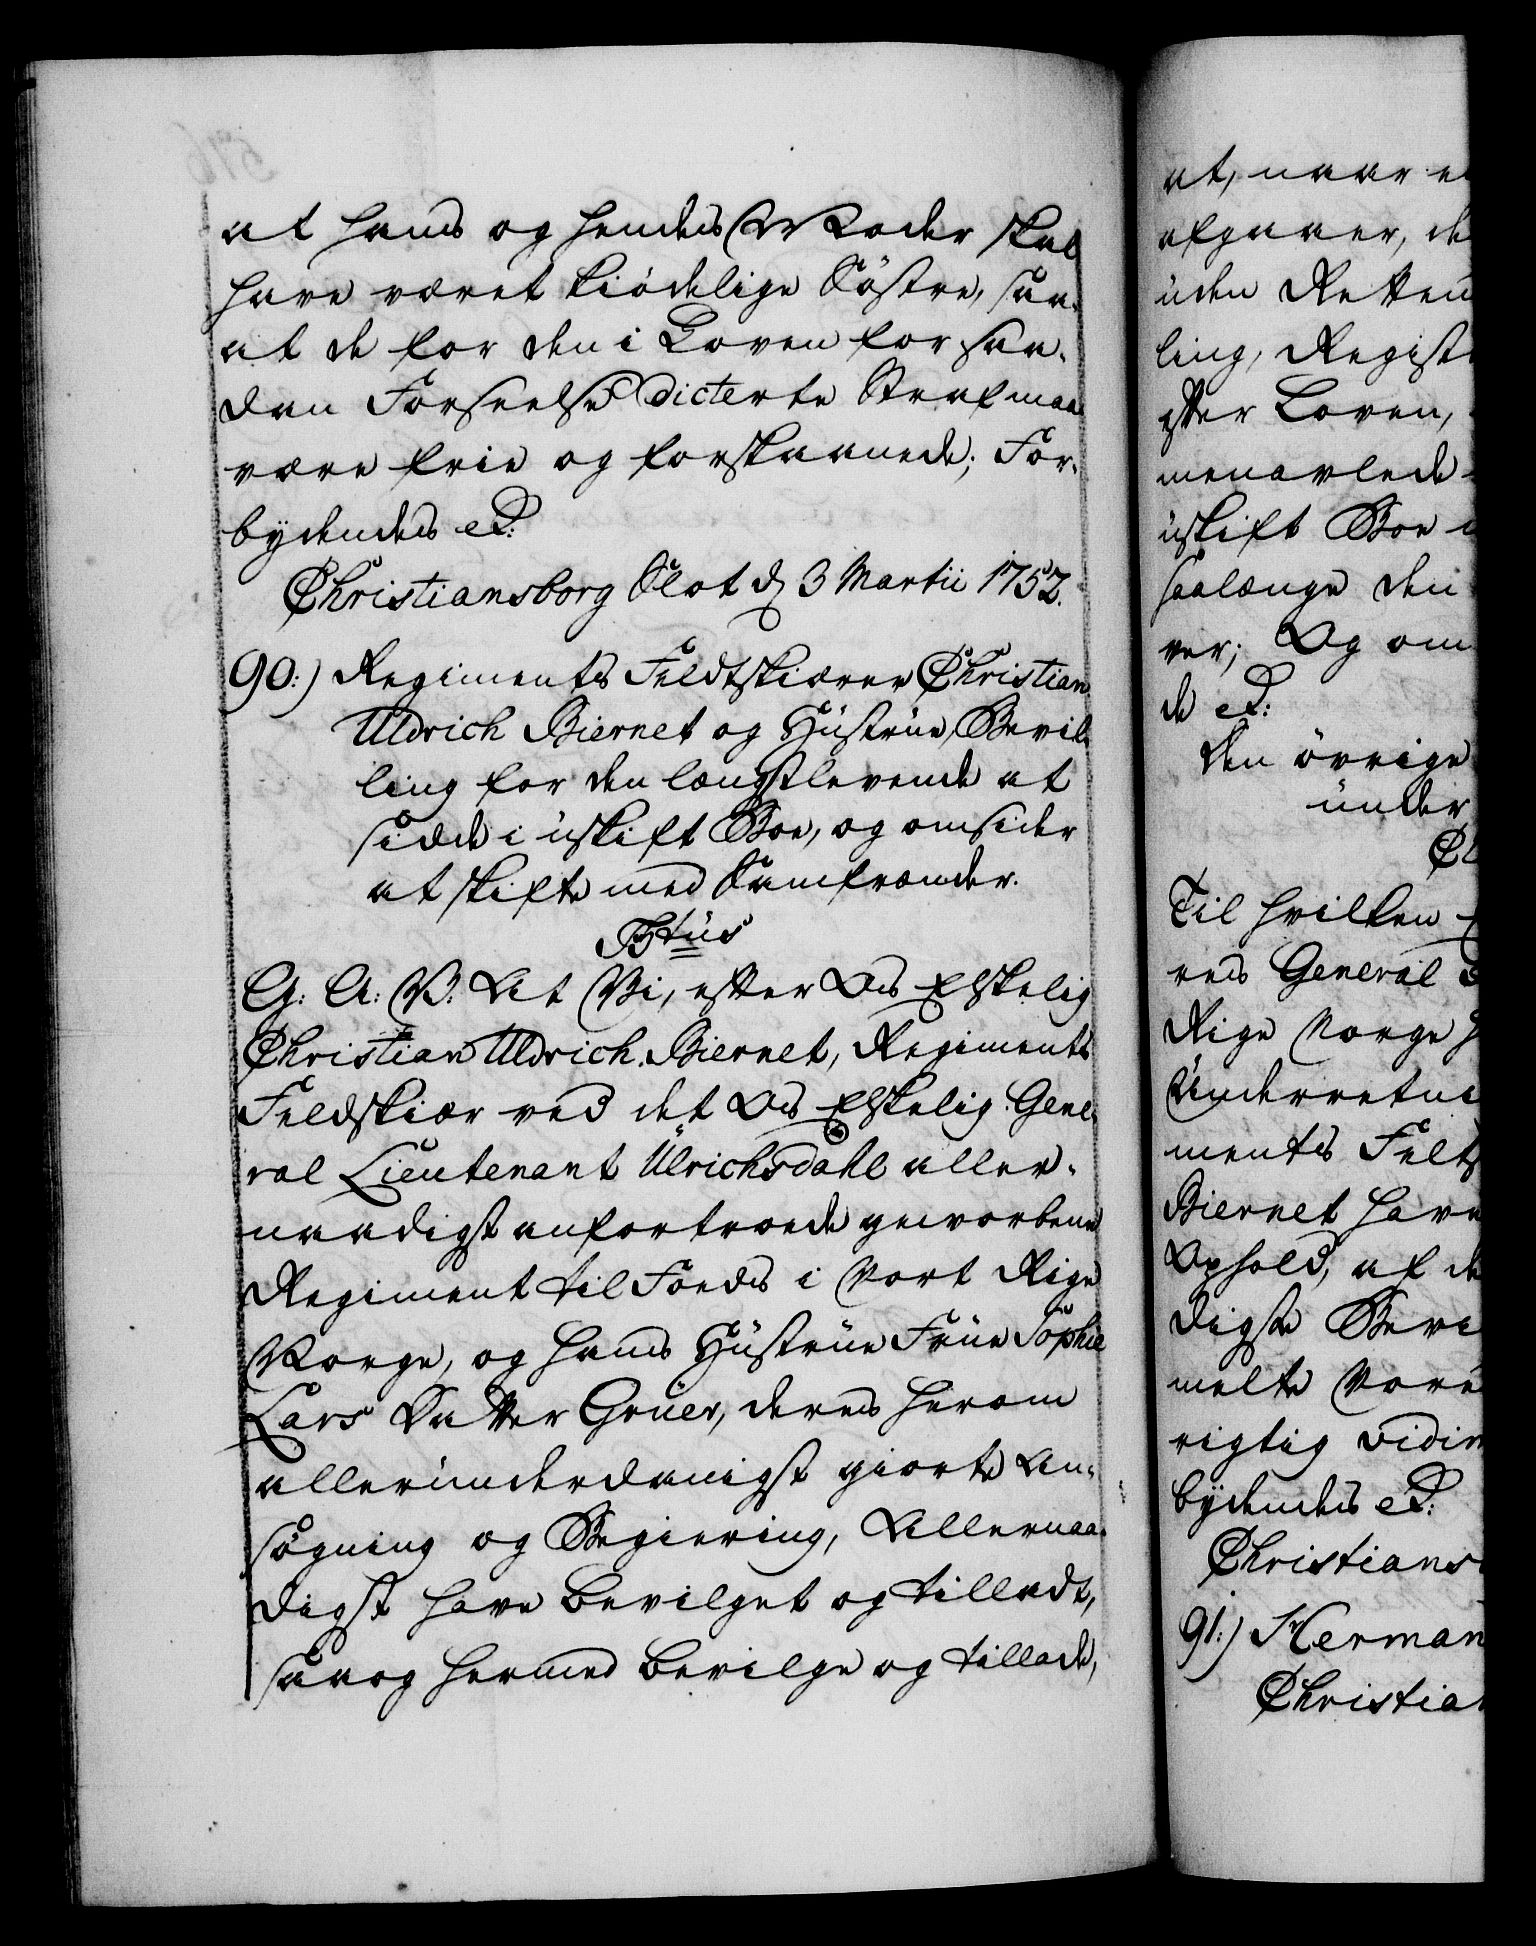 at hans og hendes Moder skal
have været kiödelige Söstre, saa-
at de for den i Loven for saa-
dan Forseelse dicterte Straf maa
være frie og forskaanede; For-
bydendes etc:
Christiansborg Slot d. 3 Martii 1752.
90:) Regiments Feldtskiærer Christian
Uldrich Biernet og Hüstrüe, Bevil-
ling for den længstlevende at
sidde i üskift Boe, og omsider
at skifte med Samfrænder.
G: A: V: At Vi, efter Os Elskelig
Christian Uldrich Biernet, Regiments
Feldskiær ved det Os Elskelig Gene-
ral Lieutenant Ulrichsdahl aller-
naadigst anfortroede gevorbene
Regiment til Foeds i Vort Rige
Norge, og hans Hüstrüe Früe Sophie
Lars Datter Grüer, deres herom
alleründerdanigst giorte An-
søgning og Begiering, Allernaa-
digst have bevilget og tilladt,
saa og hermed bevilge og tillade,
at, naar e
afgaaer, de
üden Retten
ling, Regist
efter Loven,
menavlede
üskift Boe
saalænge den
ver; Og om
de etc:
den övrige
ünder
Til hvilken
res General
Rige Norge
Ünderretni
ments Felt
Biernet have
Ophold, af de
digste Bevi
melte Vore
rigtig vidim
bydendes etc:
Christians
91:) Herman
Christia